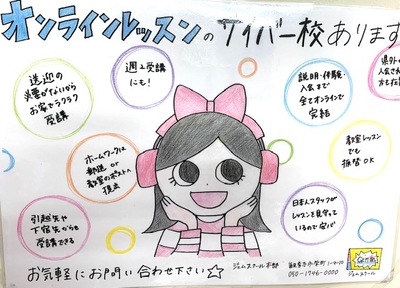 オンラインレッスンの サイバー校あります
送迎の
必要がないから
お家でラクラク
受講
週2受講
にも!
説明・体験・
入会まで
全てオンラインで
完結
県外の
ホームワークは
郵送 or
教室のポストへ
提出
教室レッスン
でも
振替OK
引越先や
下宿先からも
受講できる
日本人スタッフが
レッスンを見守って
いるので安心
お気軽にお問い合わせ下さい☆
ジェムスクール本部
050-1746-0000
ジェムスクール